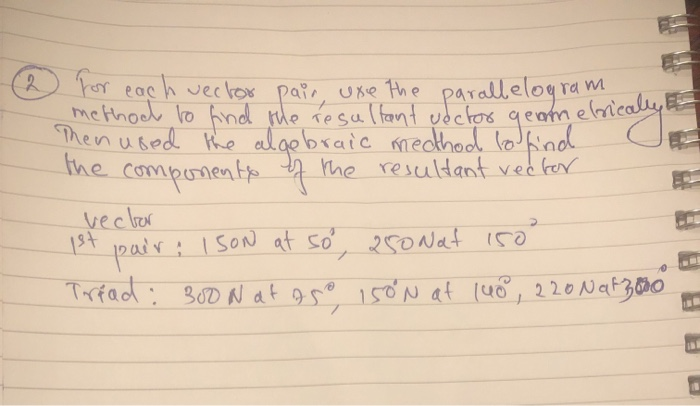 2 For each vector pair, use the parallelogram
method to find the resultant vector geometrically
Then used the algebraic medhod to find
the components of the resultant vector
vector
1st pair: 150N at 50°, 250N at 150°
Triad: 300 N at 75°, 150°N at 140°, 220N at